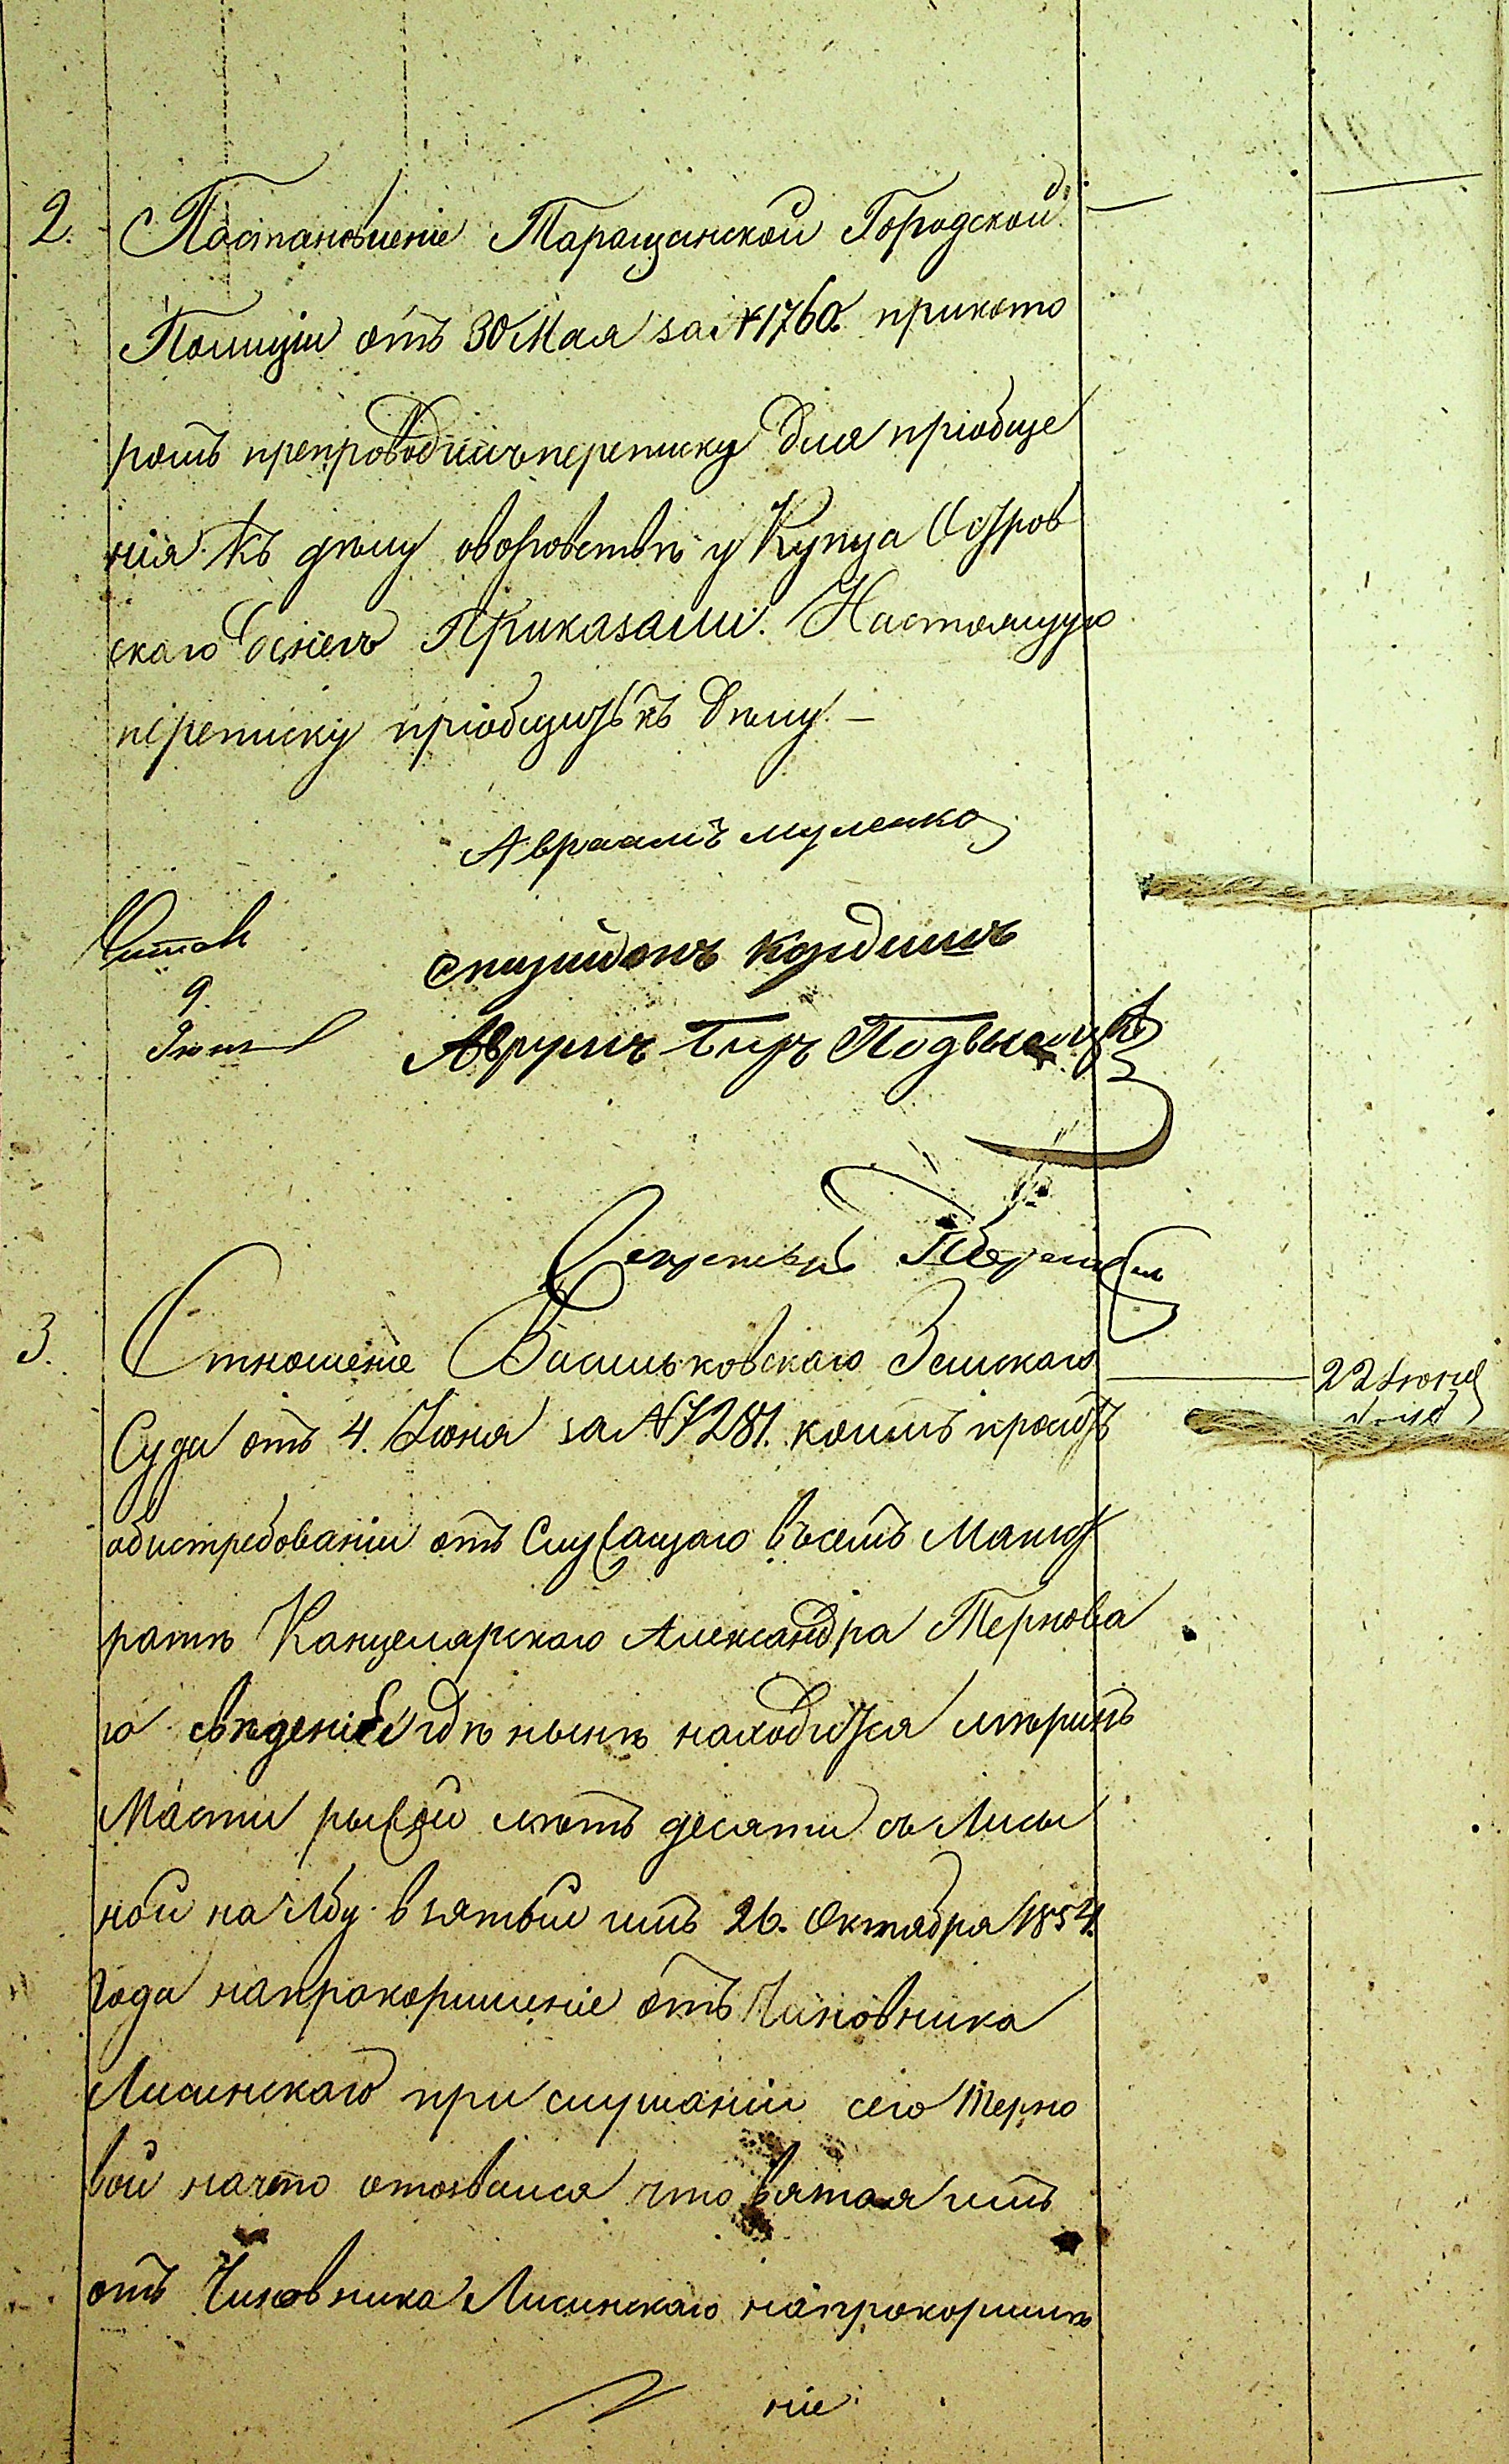 2. Постановленіе Таращанской Городской
Полиціи отъ 30 Мая за № 1760. прикото
ромъ препроводила переписку для пріобще
нія къ делу оворовствѣ у Купца Остров
скаго денегъ Приказали: Настоящую
переписку пріобщить къ делу. —
Авраамъ муленко
Читалъ
9.
Іюня
Аврумъ Беръ Подвысоцкій
Секретарь
3. Отношеніе Васильковскаго Земскаго
22 Іюня
Суда отъ 4. Іюня за № 7281. коимъ проситъ
обистребованіи отъ Служащаго въ семъ Магист
ратѣ Канцелярскаго Александра Терновa
го сведеніе где нынѣ находится меринъ
Масти рыжей летъ десяти съ Лысы
ной на лбу взятый имъ 26. Октября 1854.
года напрокормленіе отъ Чиновника
Лисинскаго при слушаніи сего Терно
вой начто отозвался что взятая имъ
отъ Чиновника Лисинскаго напрокормле
ніе